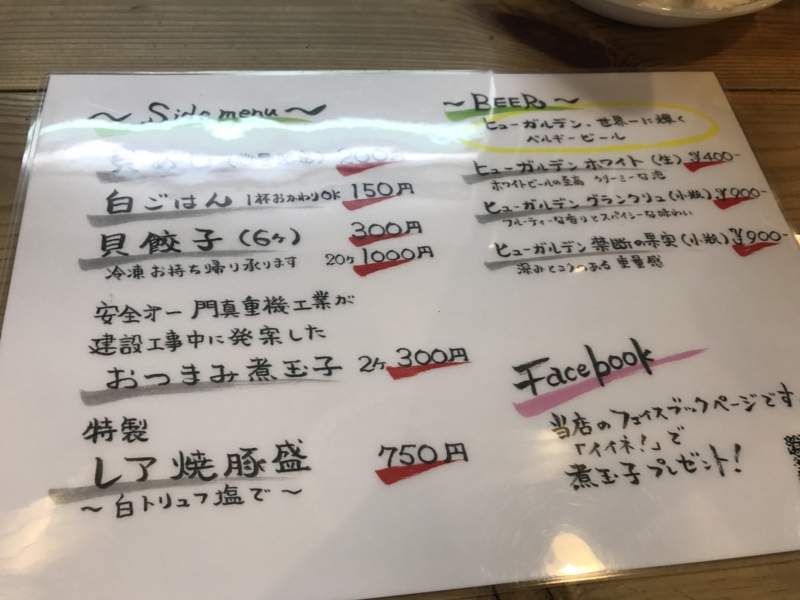 ～ Side menu ～
白ごはん 1杯おかわりOK 150円
貝餃子(6ヶ) 300円
冷凍お持ち帰り承ります 20ヶ 1000円
安全オー 門真重機工業が
建設工事中に発案した
おつまみ煮玉子 2ヶ 300円
特製
レア焼豚盛 750円
～白トリュフ塩で～
～BEER～
ヒューガルデン、世界一に輝く
ベルギービール
ヒューガルデンホワイト(生) ¥400-
ホワイトビールの至高 クリーミーな泡
ヒューガルデングランクリュ(小瓶) ¥900-
フルーティーな香りとスパイシーな味わい
ヒューガルデン禁断の果実(小瓶) ¥900-
深みとコクのある重量感
Facebook
当店のフェイスブックページです
「イイネ!」で
煮玉子プレゼント!